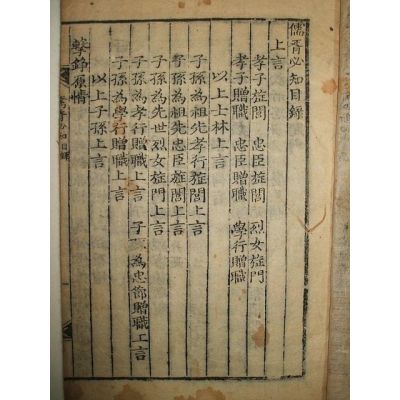 儒胥必知目錄
上言
孝子旌閭 忠臣旌閭 烈女旌門
孝子贈職 忠臣贈職 學行贈職
以上士林上言
子孫為祖先孝行旌閭上言
子孫為祖先忠臣旌閭上言
子孫為先世烈女旌門上言
子孫為學行贈職上言 子 為忠節贈職上言
以上子孫上言
擊錚原情
儒胥必知目錄